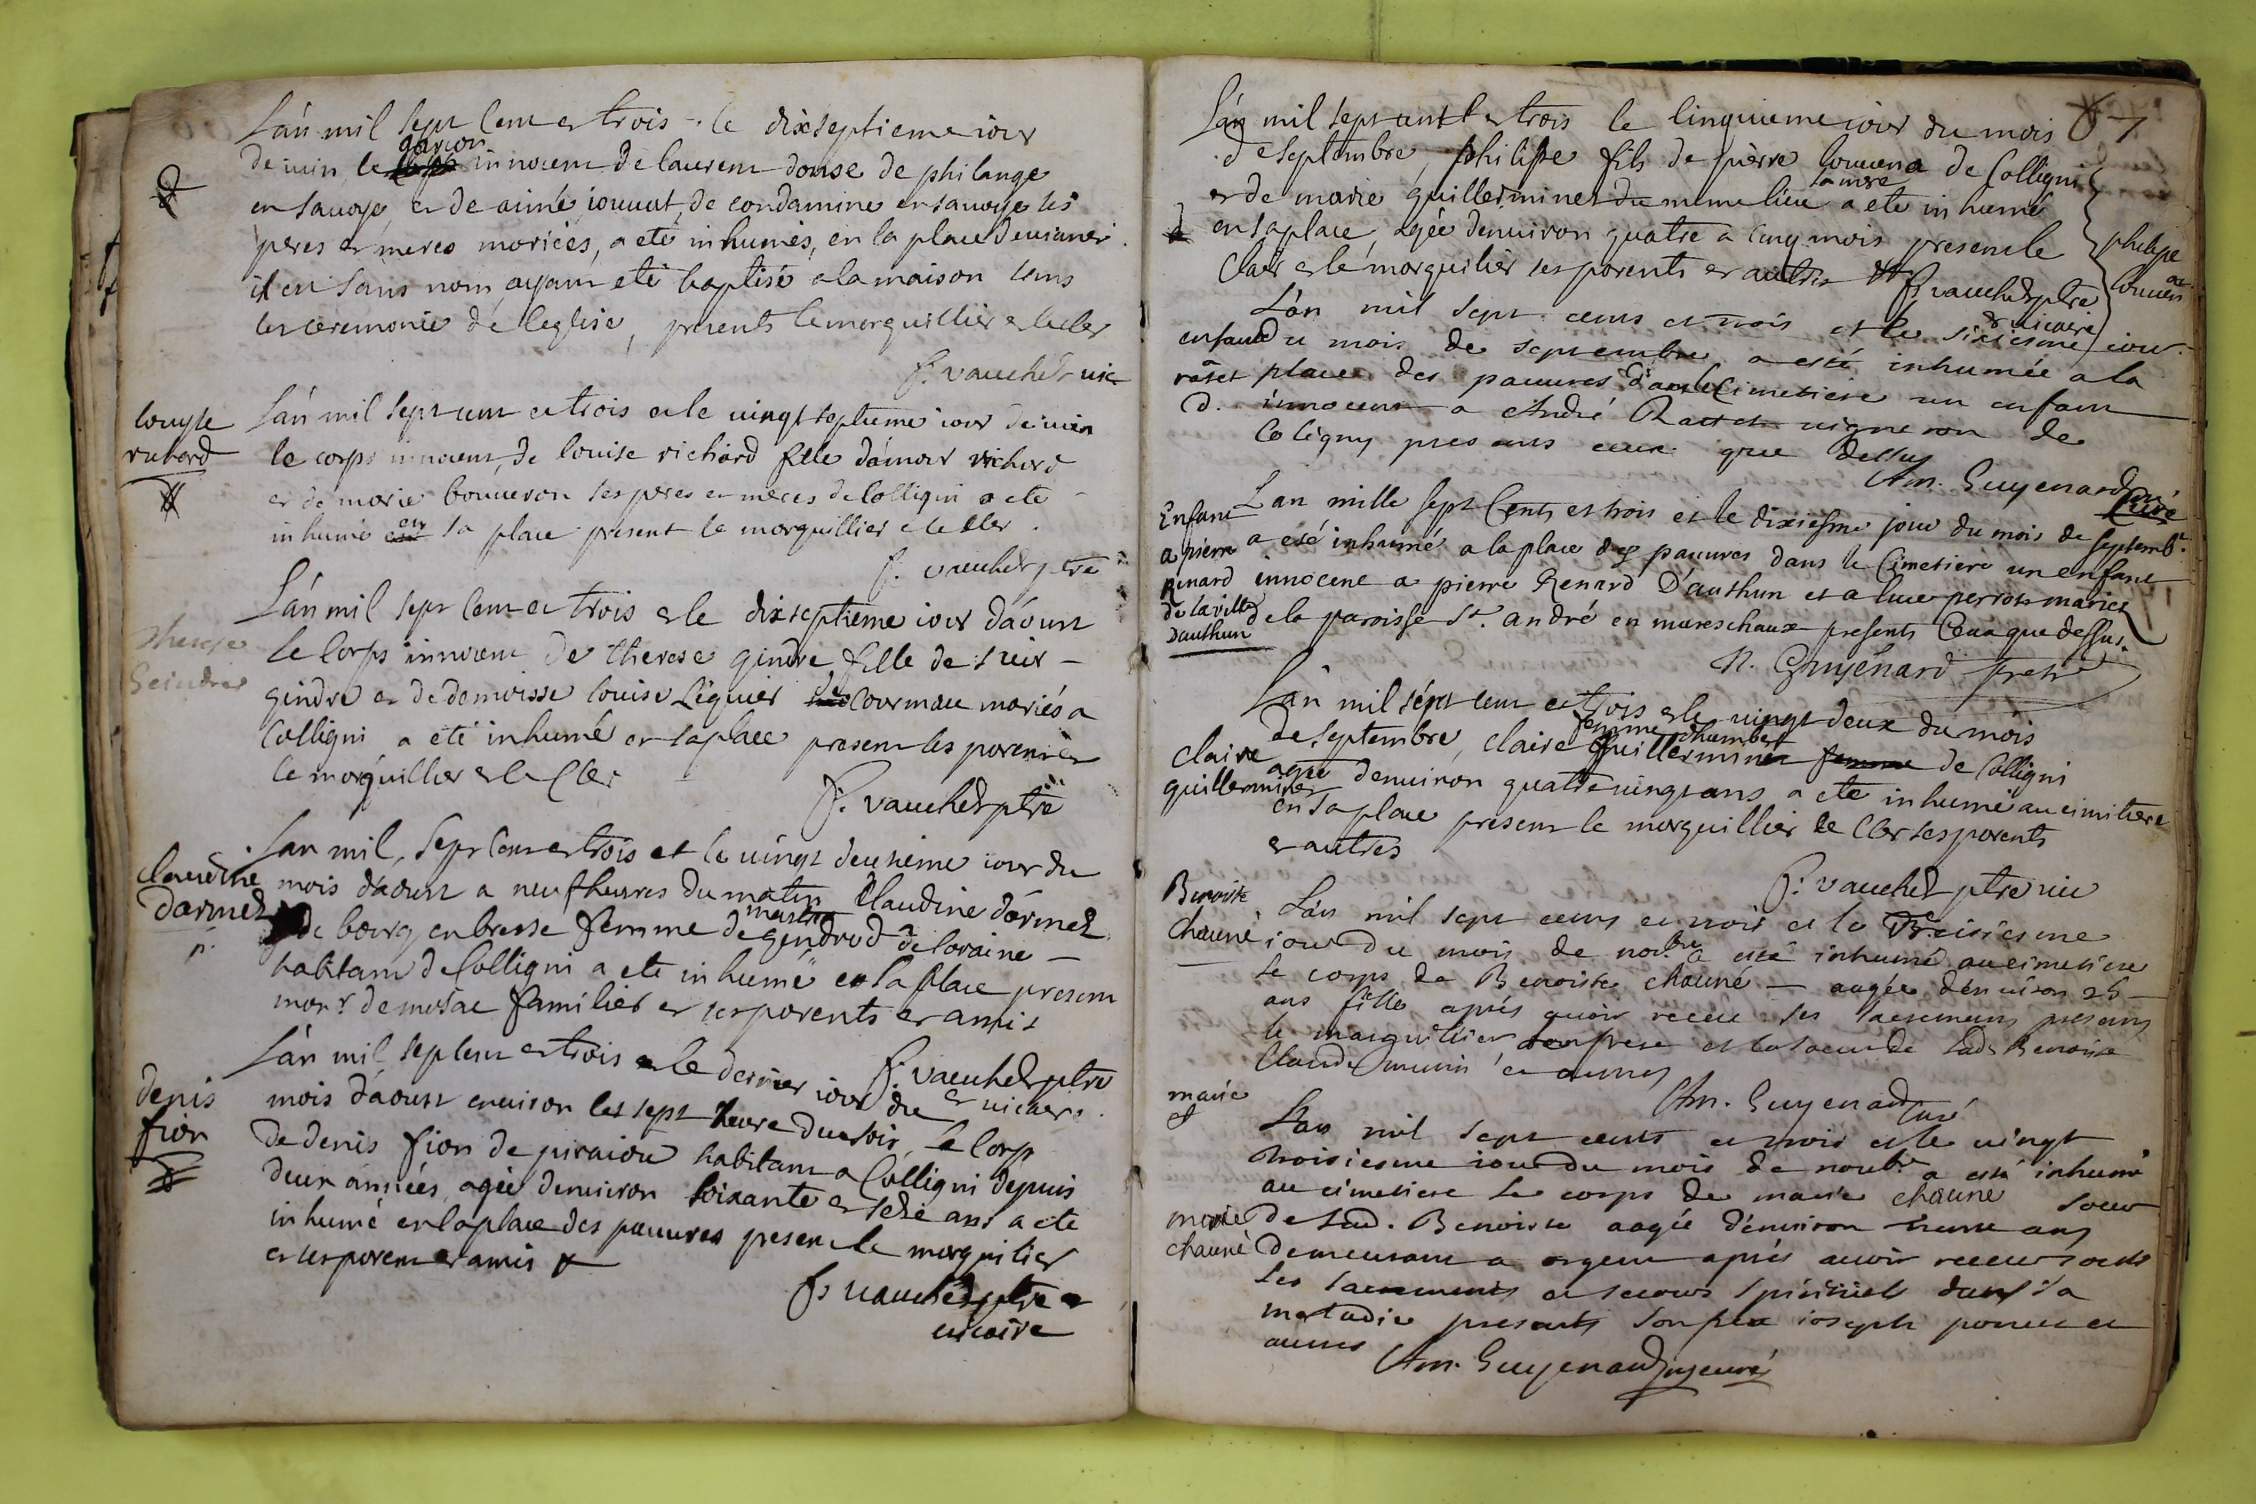 L'an mil sept cent et trois le dixseptieme iour
de iuin le garçon innocent de laurent douse de philange
en sauoye et de aimé iouuat de condamine en sauoye ses
peres et meres mariées, a eté inhumés, en la place
il est sans nom ayant eté baptisé a la maison sans
les ceremonie de l'eglise, presents le morguillier et le cler
f. vauchez vic
louyse
richard
L'an mil sept cent et trois et le uingt septieme iour de iuin
le corps innocent, de louise richard fille d'amour richard
et de marie bouueron ses peres et meres de Colligni a ete
inhumé en sa place present le morguillier e le cler.
f. vauchez ptre
therese
Geindre
L'an mil sept cent et trois e le dixseptieme iour d'aoust
le corps innocent de therese gindre fille de sieur
gindre et de demoisse louise Liquier de cormau mariés a
Colligni a eté inhumé en sa place present les parents et
le morguillier e le Cler
f. vauchez ptre
Claudine
Dormez
p.
L'an mil, sept cent et trois et le uingt deuxieme iour du
mois d'aoust a neuf heures du matin Claudine dormez
de bourg en bresse femme de martin gendrod de loraine
habitant de Colligni a ete inhumé en la place present
monr demosac familier et ses parents et amis
f. vauchez ptre
et uicaire.
denis
fion
L'an mil sept cent et trois e le dernier iour du
mois d'aoust enuiron les sept heure du soir, le corp
de denis fion de piraiou habitant a Colligni depuis
deux années agée denuiron soixante et seze ans a ete
inhumé en la place des pauures present le morguilier
et ses parent et amis
f. uauchez ptre et
uicaire
87
L'an mil sept cent et trois le cinquieme iour du mois
de septembre, philipe fils de pierre bouuena de Colligni
et de marie guilleminet du meme lieu sa mere a eté inhumé
en sa place, agée denuiron quatre a cinq mois present le
Cler e le morguilier ses parents et autres
f. vauchez ptre
et uicaire
philipe
L'an mil sept cens et trois et le sixiesme iour
du mois de septembre a esté inhumée a la
place des pauures dans le Cimetiere un enfant
innocent a André Rasset uigneron de
Coligny presents ceux que dessus
Am. Guyenard Curé
enfant
raset
d.
Enfant
a pierre
Renard
de la ville
Dauthun
L'an mille sept Cents et trois et le dixiesme jour du mois de septembr.
a esé inhumé a la place des pauures dans le Cimetiere un enfant
innocent a pierre Renard D'authun et a luce perrot mariez
de la paroisse st. andré en mareschaux presents Ceux que dessus.
N. Guyénard pretre
claire
guilleminet
L'an mil sept cent et trois e le uingt deux du mois
de septembre, claire guilleminet femme dhumbert de Colligni
agée denuiron quatreuingt ans a eté inhumé au cimitiere
en sa place present le morguillier le Cler ses parents
et autres
f. vauchez ptre uic
Benoiste
chauné
L'an mil sept cens et trois et le treisiesme
iour du mois de nobre a esté inhumé au cimetiere
le corps de Benoiste chauné aagée dénuiron 26
ans fille aprés auoir receu ses sacremens presens
le marguillier son frere et la soeur de lade Benoiste
Claude et autres
Am. Guyenard curé
marie
L'an mil sept cents et trois et le uingt
troisiesme iour du mois de noubr. a esté inhumé
au cimetiere le corps de marie chauné soeur
de lad. Benoiste aagée dénuiron trente ans
demeurant a argent aprés auoir receu tous
les sacrements et secours spirituels dans sa
maladie presents son frere ioseph et
autres
Am. Guyenard curé
marie
chauné